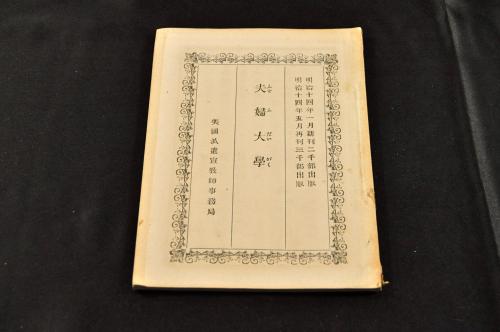 明治十四年一月新刊二千部出版
明治十四年五月再刊三千部出版
夫婦大學
ふうふだいがく
英國派遣宣教師事務局